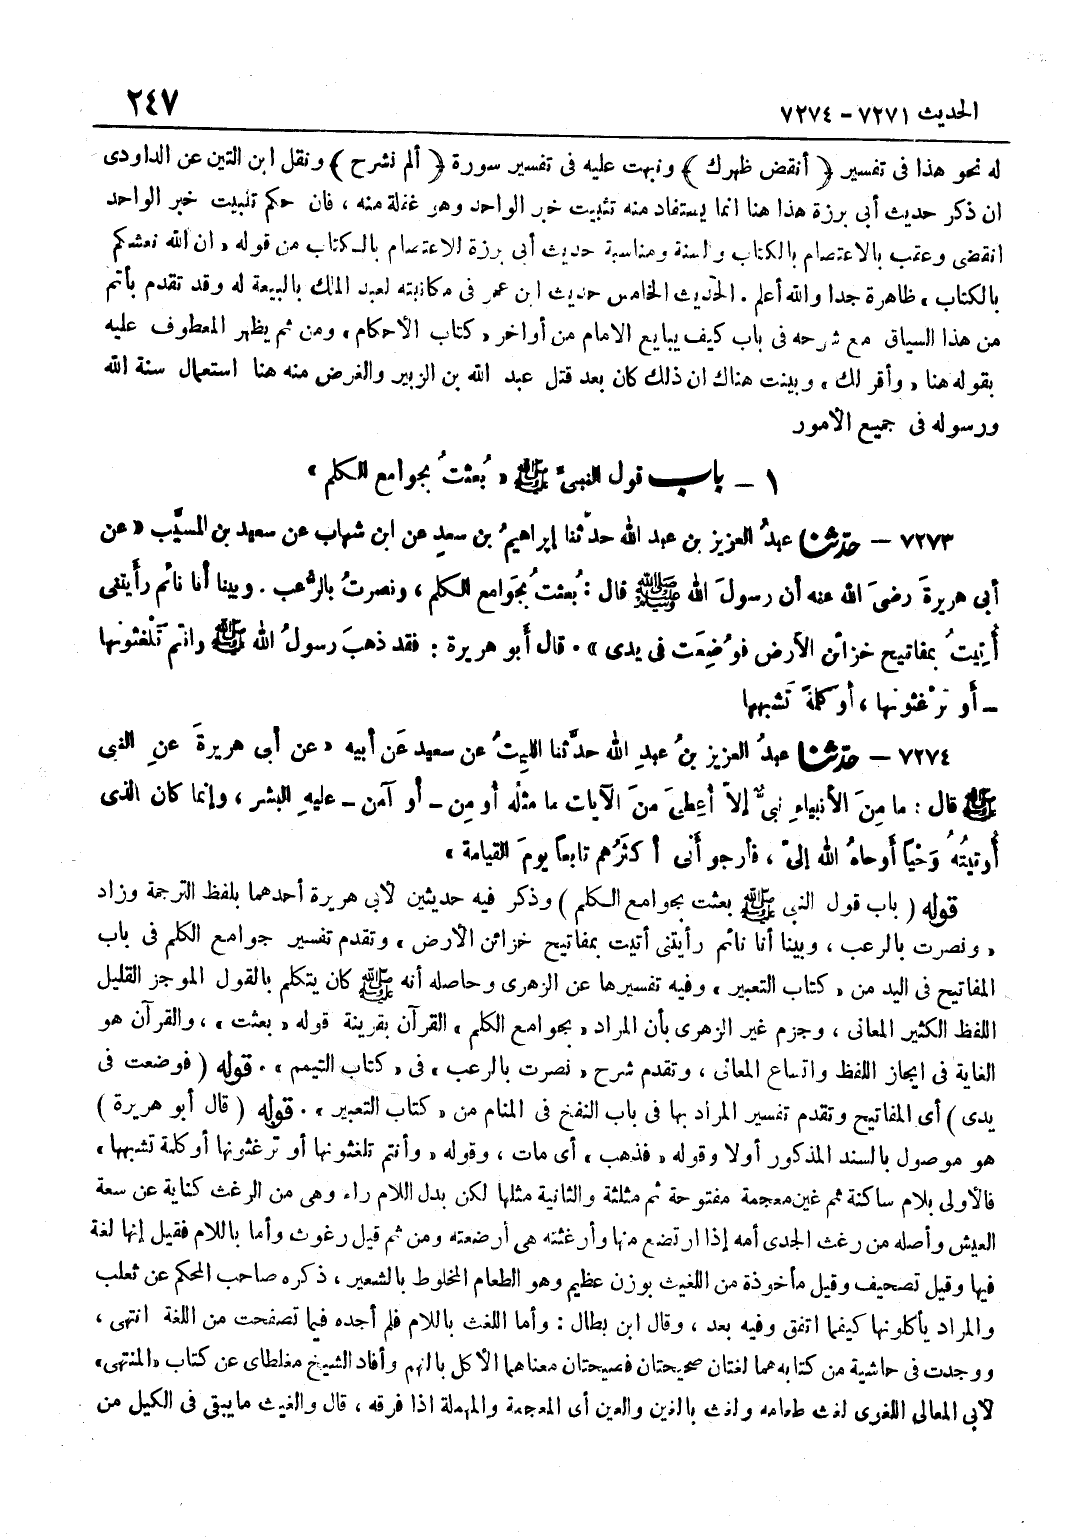 الحديث ٧٢٧١ - ٧٢٧٤
٢٤٧
له نحو هذا فى تفسير ﴿ أنقض ظهرك ﴾ ونبهت عليه فى تفسير سورة ﴿ ألم نشرح ﴾ ونقل ابن التين عن الداودى
ان ذكر حديث أبى برزة هذا هنا انما يستفاد منه تثبيت خبر الواحد وهو غفلة منه ، فان حكم تثبيت خبر الواحد
انقضى وعقب بالاعتصام بالكتاب والسنة ومناسبة حديث أبى برزة للاعتصام بالكتاب من قوله « ان الله نعشكم
بالكتاب » ظاهرة جدا والله أعلم . الحديث الخامس حديث ابن عمر فى مكاتبته لعبد الملك بالبيعة له وقد تقدم بأتم
من هذا السياق مع شرحه فى باب كيف يبايع الامام من أواخر « كتاب الأحكام » ومن ثم يظهر المعطوف عليه
بقوله هنا « وأقر لك » وبينت هناك ان ذلك كان بعد قتل عبد الله بن الزبير والغرض منه هنا استعمال سنة الله
ورسوله فى جميع الأمور
١ - باب قول النبىِّ ﷺ « بُعثتُ بجوامع الكلم »
٧٢٧٣ - حدّثنا عبدُ العزيز بن عبد الله حدّثنا إبراهيمُ بن سعدٍ عن ابن شهاب عن سعيد بن المسيَّب « عن
أبى هريرةَ رضىَ الله عنه أن رسولَ الله ﷺ قال : بُعثتُ بجَوامع الكلم ، ونصرتُ بالرُّعب . وبينا أنا نائم رأَيتنى
أُتِيتُ بمفاتيح خزائن الأرض فوُضِعَت فى يدى » . قال أبو هريرة : فقد ذهبَ رسولُ الله ﷺ وانتم تَلْغثونها
- أو تَرْغثونها ، أو كلمةً تَشبهها
٧٢٧٤ - حدّثنا عبدُ العزيز بنُ عبدِ الله حدَّثنا الليثُ عن سعيد عَن أبيه « عن أبى هريرةَ عنِ النبى
ﷺ قال : ما مِنَ الأنبياءِ نبىٌّ إلاّ أعطىَ منَ الآيات ما مثلُه أومِن - أو آمن - عليهِ البشر ، وإنما كان الذى
أُوتيتُهُ وَحْياً أوحاهُ الله إلىّ ، فأرجو أَنى أكثرُهم تابعاً يومَ القيامة »
قوله ( باب قول النبى ﷺ بعثت بجوامع الكلم ) وذكر فيه حديثين لأبى هريرة أحدهما بلفظ الترجمة وزاد
« ونصرت بالرعب ، وبينا أنا نائم رأيتنى أتيت بمفاتيح خزائن الأرض » وتقدم تفسير جوامع الكلم فى باب
المفاتيح فى اليد من « كتاب التعبير » وفيه تفسيرها عن الزهرى وحاصله أنه ﷺ كان يتكلم بالقول الموجز القليل
اللفظ الكثير المعانى ، وجزم غير الزهرى بأن المراد « بجوامع الكلم » القرآن بقرينة قوله « بعثت » ، والقرآن هو
الغاية فى ايجاز اللفظ واتساع المعانى ، وتقدم شرح « نصرت بالرعب » فى « كتاب التيمم » . قوله ( فوضعت فى
يدى ) أى المفاتيح وتقدم تفسير المراد بها فى باب النفخ فى المنام من « كتاب التعبير » . قوله ( قال أبو هريرة )
هو موصول بالسند المذكور أولا وقوله « فذهب » أى مات ، وقوله « وأنتم تلغثونها أو ترغثونها أو كلمة تشبهها »
فالأولى بلام ساكنة ثم غين معجمة مفتوحة ثم مثلثة والثانية مثلها لكن بدل اللام راء وهى من الرغث كناية عن سعة
العيش وأصله من رغث الجدى أمه إذا ارتضع منها وأرغثته هى أرضعته ومن ثم قيل رغوث وأما باللام فقيل إنها لغة
فيها وقيل تصحيف وقيل مأخوذة من اللغيث بوزن عظيم وهو الطعام المخلوط بالشعير ، ذكره صاحب المحكم عن ثعلب
والمراد يأكلونها كيفما اتفق وفيه بعد ، وقال ابن بطال : وأما اللغث باللام فلم أجده فيما تصفحت من اللغة انتهى ،
ووجدت فى حاشية من كتابه هما لغتان صحيحتان فصيحتان معناهما الأكل بالنهم وأفاد الشيخ مغلطاى عن كتاب «المنتهى»
لأبى المعالى اللغوى لغث طعامه ولعث بالغين والعين أى المعجمة والمهملة اذا فرقه ، قال والغيث مايبقى فى الكيل من